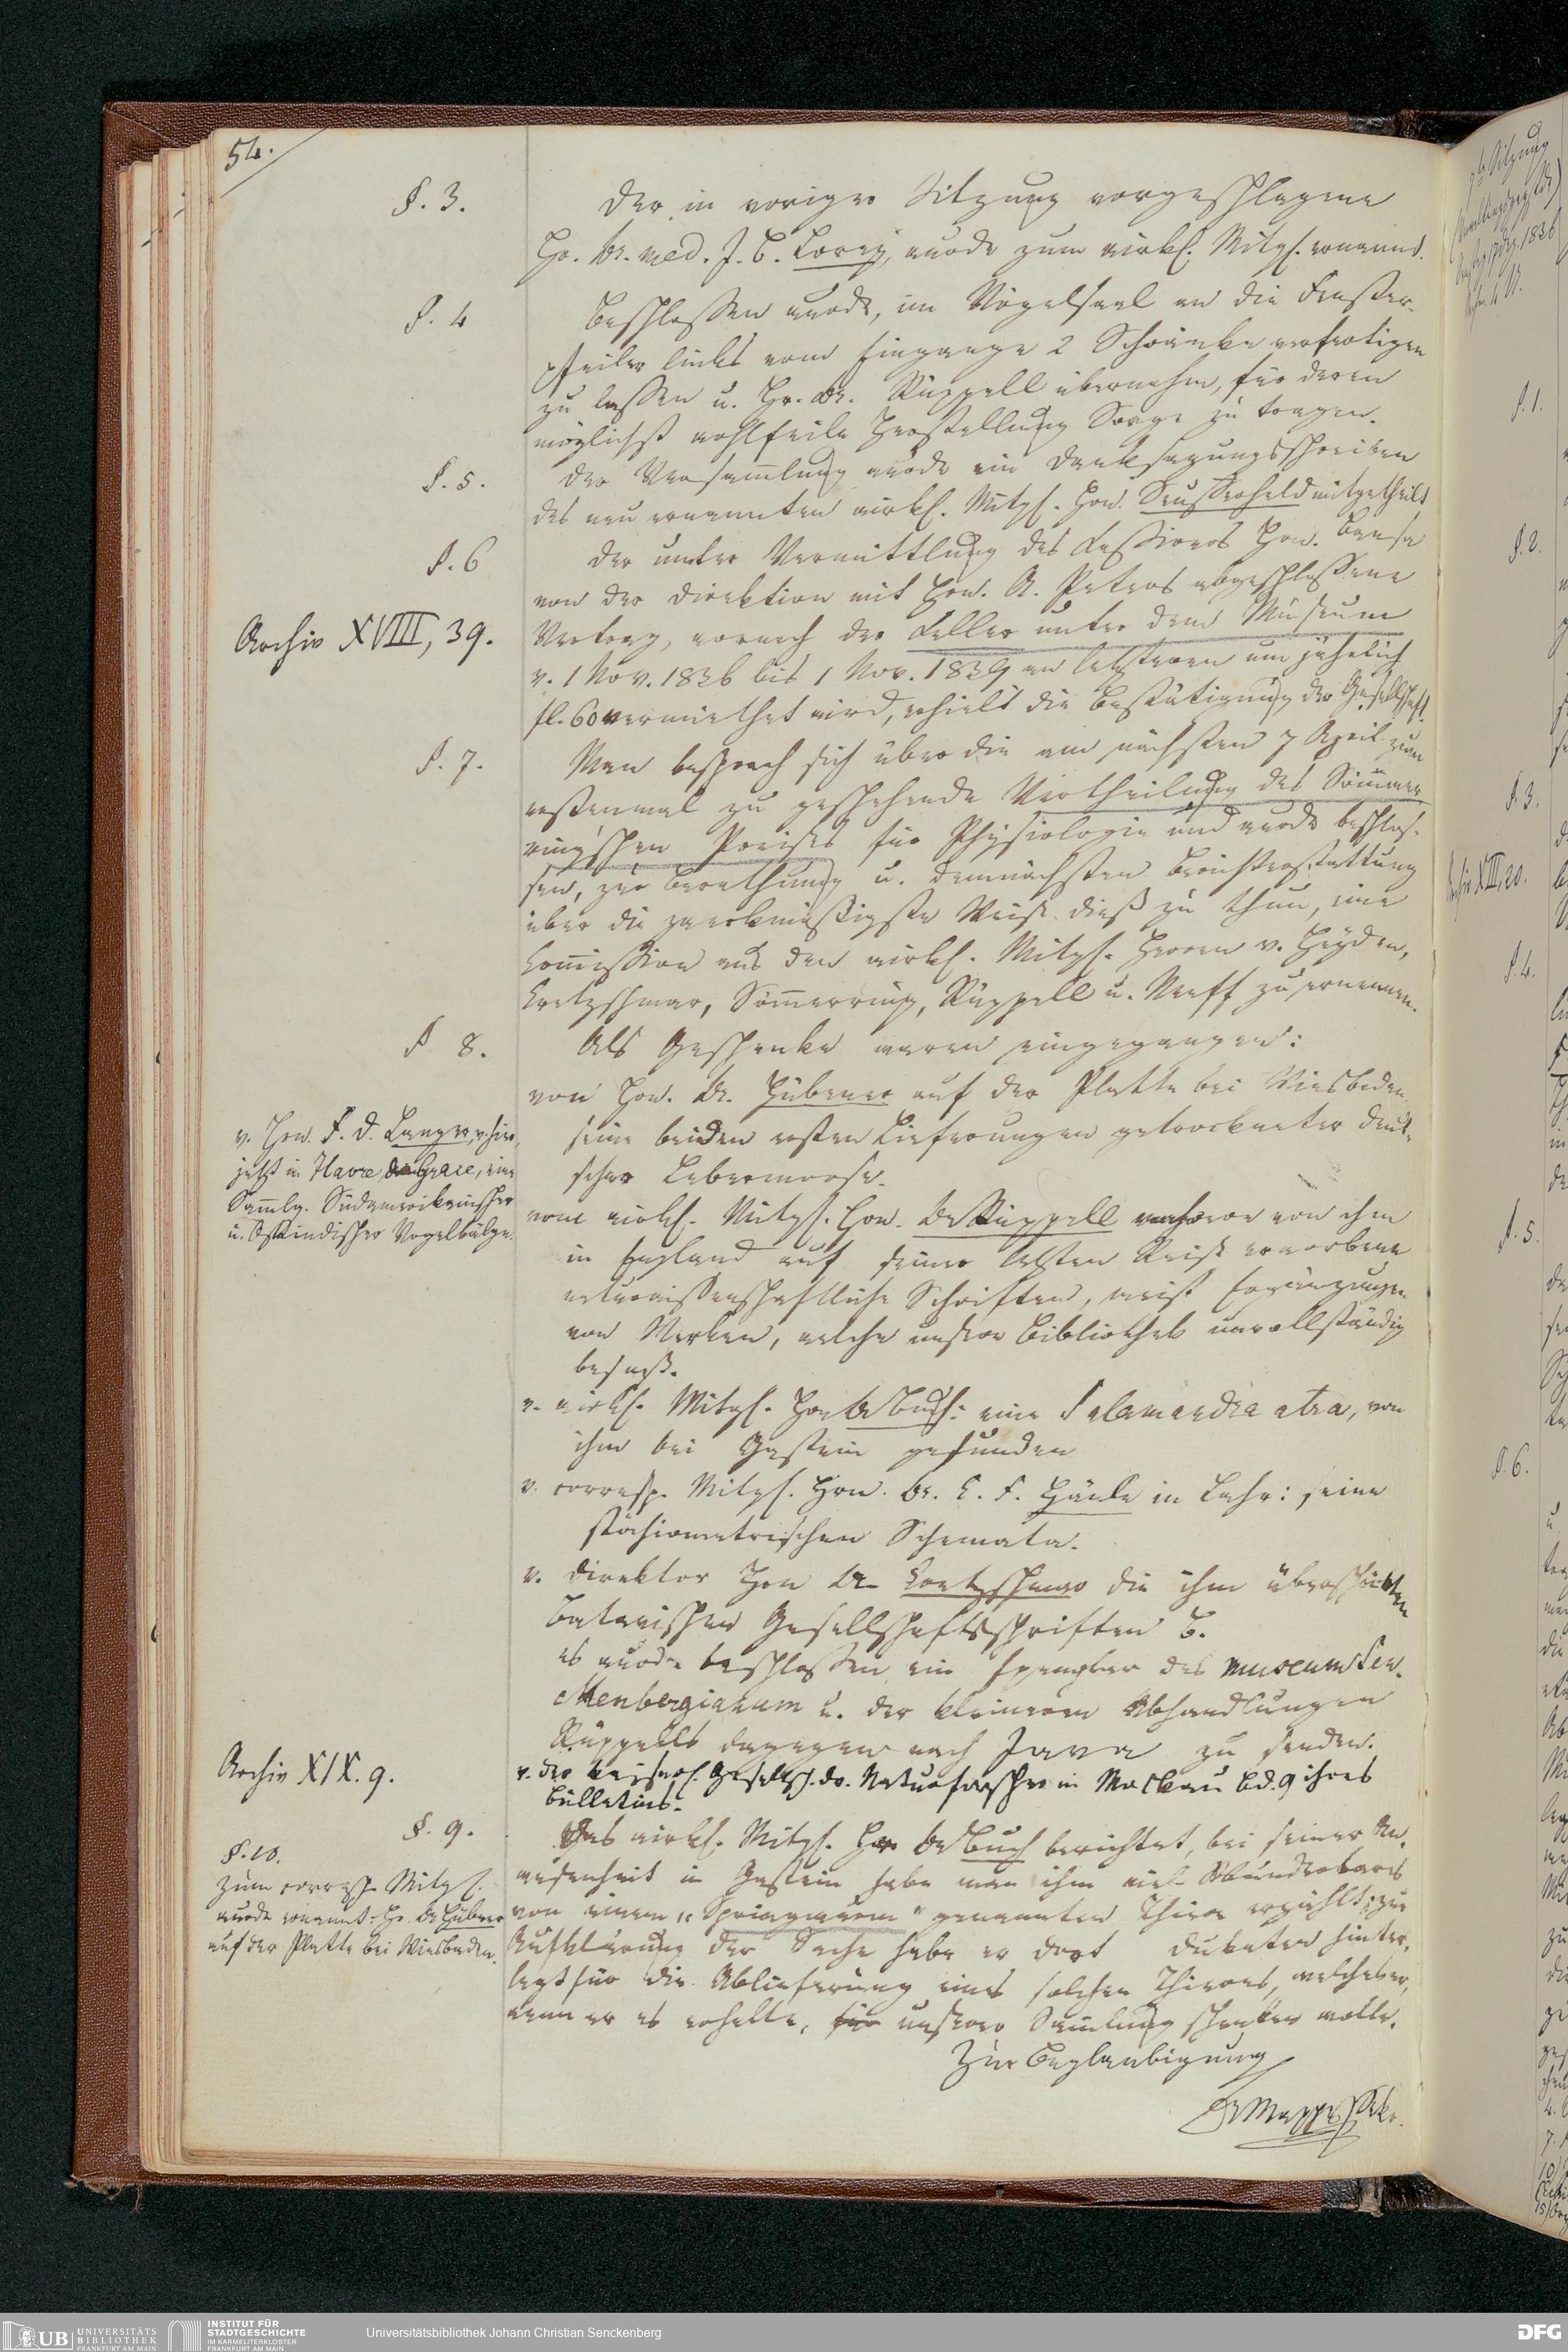 54.
§. 3.
Der in voriger Sitzung vorgeschlagene
Hr. Dr. med. J. C. Lorey, wurde zum wirkl. Mitgl. ernannt.
§. 4
Beschlossen wurde, im Vögelsaal an die Fenster-
pfeiler links vom Eingange 2 Schränke verfertigen
zu lassen u. Hr. Dr. Rüppell übernahm, für deren
möglichst wohlfeile Herstellung Sorge zu tragen.
§. 5.
Der Versam̄lung wurde ein Danksagungsschreiben
des neu ernannten wirkl. Mitgl. Hrn. Seufferheld mitgetheilt
§. 6
Der unter Vermittlung des Kassiers Hrn.
von der Direktion mit Hrn. A. Peters abgeschlossene
Archiv XVIII, 39.
Vertrag, wornach der Keller unter dem Museum
v. 1 Nov. 1836 bis 1 Nov. 1839 an letzteren um jährlich
fl. 60 vermiethet wird, erhielt die Bestätigung der Gesellschaft.
§. 7.
Man besprach sich über die am nächsten 7 April zum
erstenmal zu geschehende Vertheilung des Söm̄er-
ring'schen Preises für Physiologie und wurde beschlos-
sen, zur Berathung u. demnächsten Berichterstattung
über die zweckmäßigste Weise dieß zu thun, eine
Com̄ission aus den wirkl. Mitgl. Herren v. Heyden,
Cretzschmar, Söm̄erring, Rüppell u. Neeff zu ernennen.
§ 8.
Als Geschenke waren eingegangen:
von Hrn. Dr. Hübener auf der Platte bei Wiesbaden,
seine beiden ersten Lieferungen getrockneter deut-
scher Lebermoose.
v. Hrn. F. D. Langer, v. hier,
jetzt in Havre de Grace, eine
Sam̄lg. Südamerikanischer
u. Ostindischer Vogelbälge.
vom wirkl. Mitgl. Hrn. Dr Rüppell mehrere von ihm
in England auf seiner letzten Reise erworbene
naturwissenschaftliche Schriften, meist Ergänzungen
von Werken, welche unsere Bibliothek unvollständig
besaß.
v. wirkl. Mitgl. Hrn Dr Buch: eine Salamandra atra, von
ihm bei Gastein gefunden
v. corresp. Mitgl. Hrn. Dr. C. F. Hänle in Lahr: seine
stöchiometrischen Schemata.
v. Direktor Hrn Dr Cretzschmar die ihm überschickten
Batavischen Gesellschaftsschriften
es wurde beschlossen ein Exemplar des museum Sen-
ckenbergianum u. der kleineren Abhandlungen
Rüppells dagegen nach Java zu senden.
Archiv XIX. 9.
v. der kaiserl. Gesellsch. dr. Naturforscher in Moskau Bd. 9 ihres
Bulletins.
§. 9.
Das wirkl. Mitgl. Hr Dr Buch berichtet, bei seiner An-
wesenheit in Gastein habe man ihm viel Wunderbares
von einem „Springwurm" genannten Thiere erzählt; zur
Aufklärung der Sache habe er dort Dukaten hinter-
legt für die Ablieferung eines solchen Thieres, welches er,
wenn er es erhalte, für unserer Sam̄lung schenken wolle.
§. 10.
Zum corresp. Mitgl.
wurde ernannt: Hr. Dr Hübener
auf der Platte bei Wiesbaden.
Zur Beglaubigung
Dr Mappes Sekr.
§. 1.
§. 2.
§. 3.
XIII, 20.
§. 4.
§. 5.
§. 6.
UB UNIVERSITÄTS
BIBLIOTHEK
FRANKFURT AM MAIN
INSTITUT FÜR
STADTGESCHICHTE
IM KARMELITERKLOSTER
FRANKFURT AM MAIN
Universitätsbibliothek Johann Christian Senckenberg
DFG